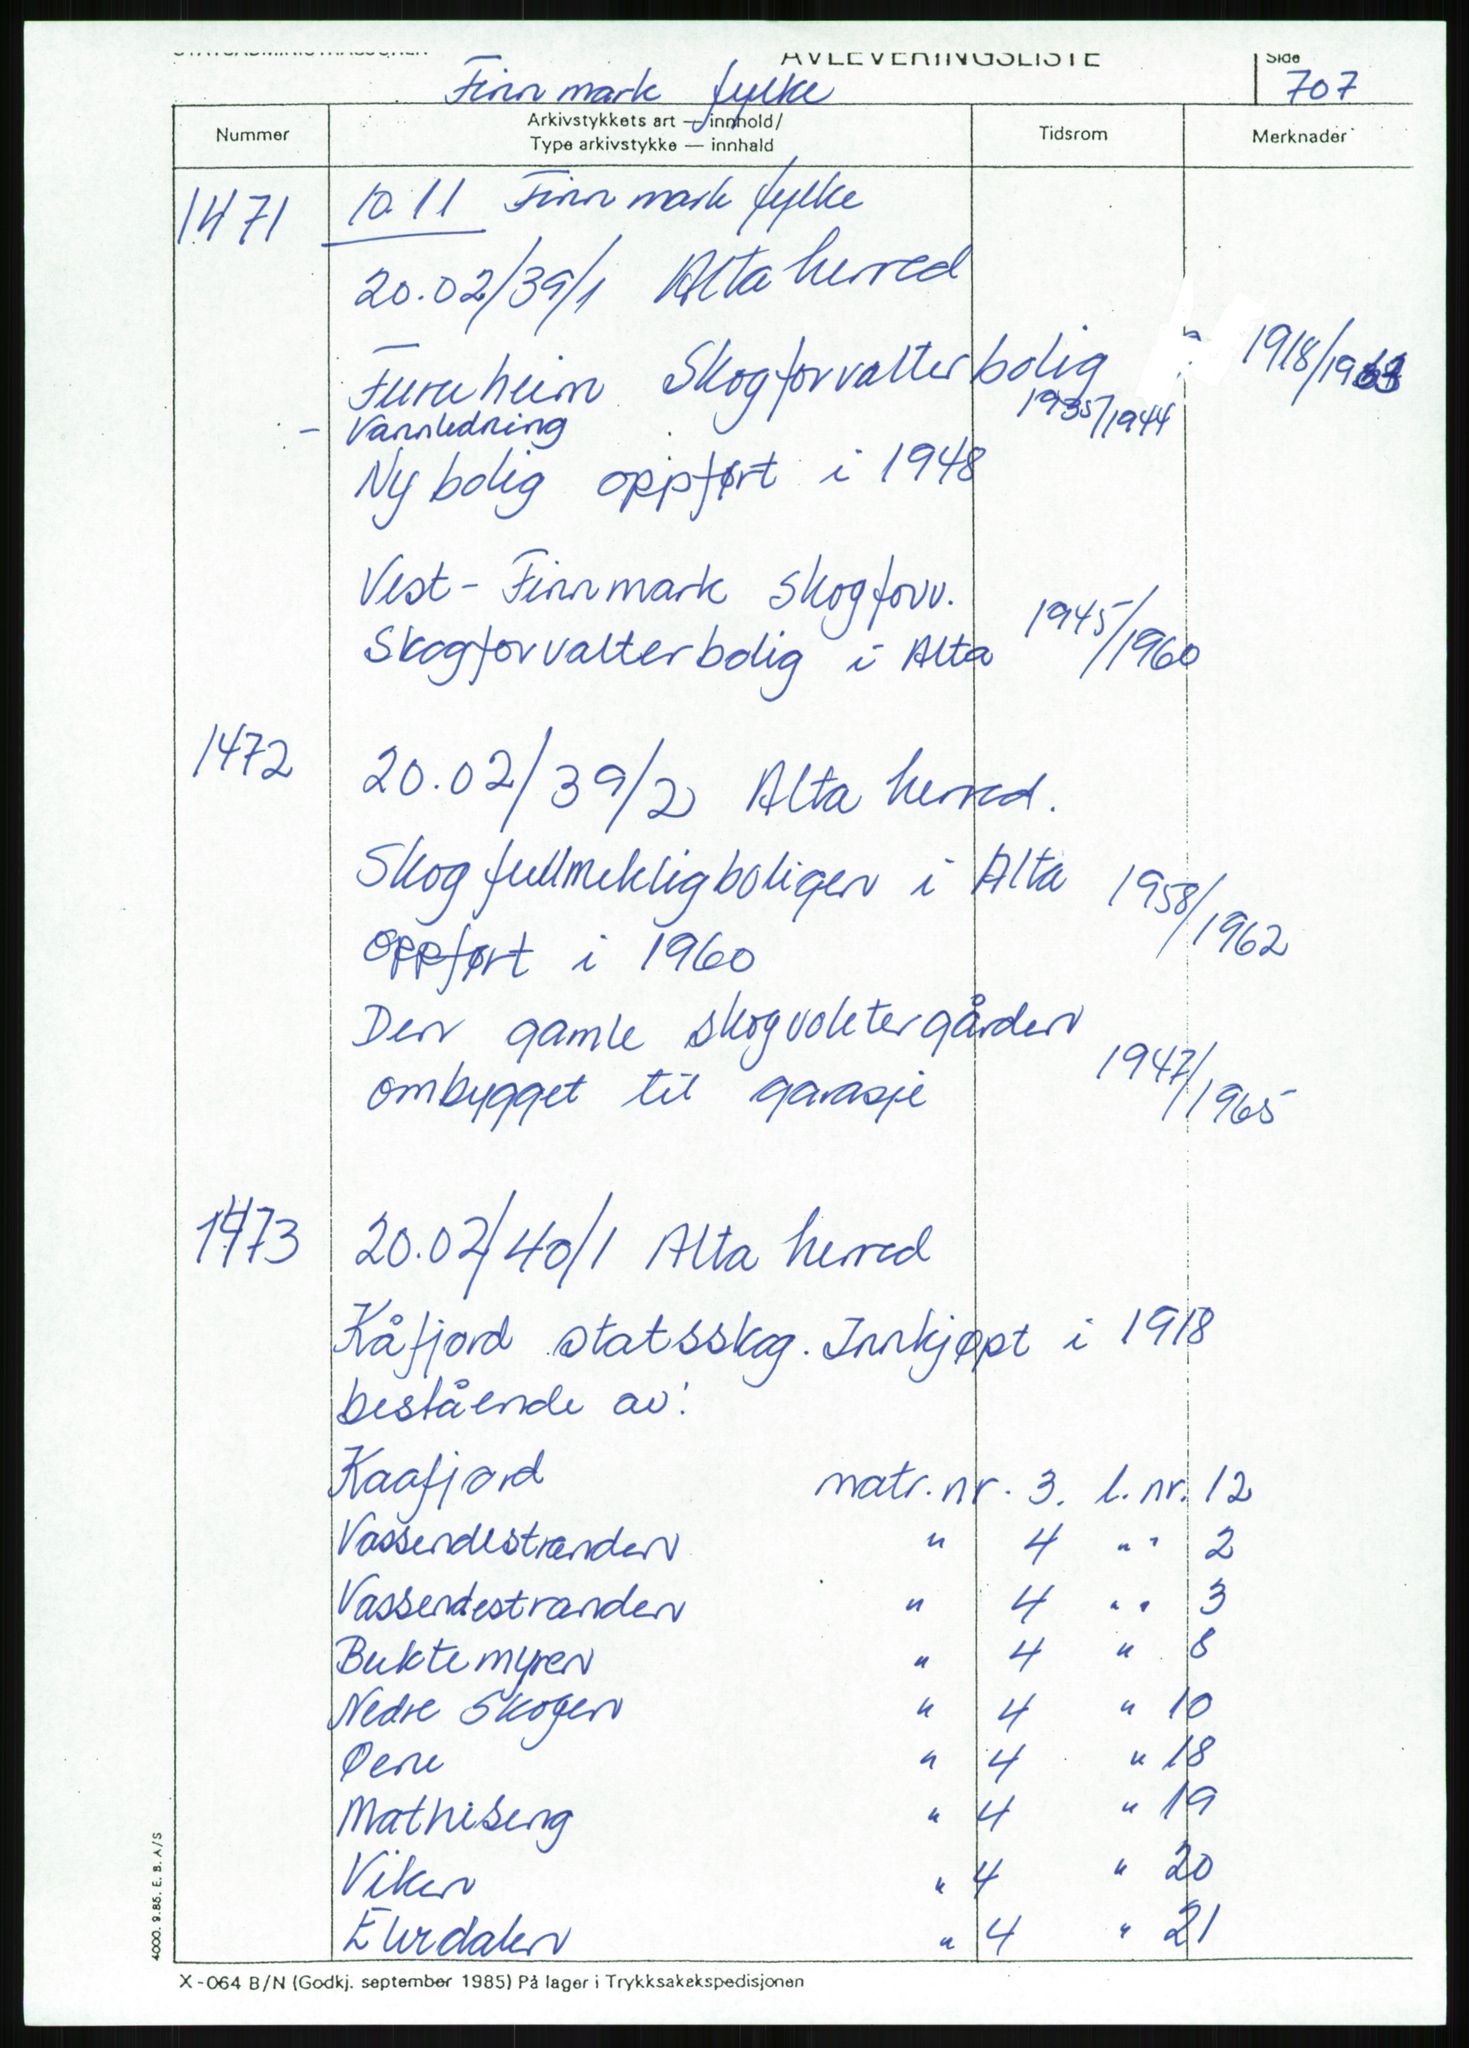 STATSADMINISTRASJONEN AVLEVERINGSLISTE Side
Finnmark fylke 707
Nummer Arkivstykkets art — innhold/ Tidsrom Merknader
Type arkivstykke — innhald
1471 10.11 Finnmark fylke
20.02/39/1 Alta herred
Furuheim Skogforvalterbolig 1918/19
- Vannledning 1935/1944
Ny bolig oppført i 1948
Vest-Finnmark skogforv.
Skogforvalterbolig i Alta 1945/1960
1472 20.02/39/2 Alta herred.
Skogfullmektigboligen i Alta 1958/1962
oppført i 1960
Den gamle skogvoktergården
ombygget til garasje 1947/1965
1473 20.02/40/1 Alta herred
Kåfjord statsskog. Innkjøpt i 1918
bestående av:
Kaafjord matr. nr. 3. l. nr. 12
Vassendestranden " 4 " " 2
Vassendestranden " 4 " " 3
Buktemyren " 4 " 8
Nedre Skogen " 4 " 10
" 4 " 18
Mathiseng " 4 " 19
Viken " 4 " 20
" 4 " 21
4000. 9.85. E. B. A/S
X-064 B/N (Godkj. september 1985) På lager i Trykksakekspedisjonen